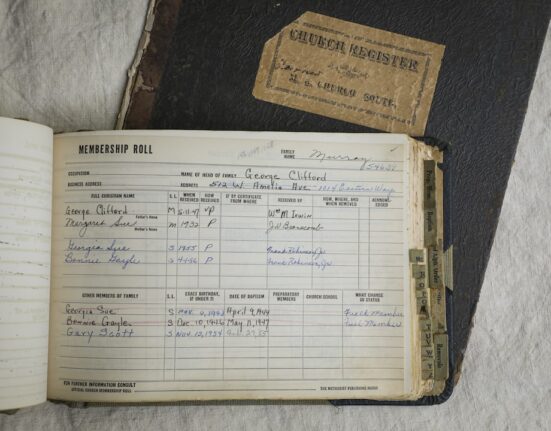 CHURCH REGISTER
M. E. CHURCH SOUTH
MEMBERSHIP ROLL
FAMILY NAME Murray
OCCUPATION
NAME OF HEAD OF FAMILY George Clifford
BUSINESS ADDRESS
ADDRESS 512 W. Amelia Ave.
FULL CHRISTIAN NAME S.L. WHEN RECEIVED HOW RECEIVED IF BY CERTIFICATE FROM WHERE RECEIVED BY HOW, WHERE, AND WHEN REMOVED ACKNOWLEDGED
George Clifford M 5-11-47 Wm M Irwin
Father's Name
Margaret Sue M 1932 P
Mother's Name
Georgia Sue S 1955 P Frank Robinson, Jr.
Bonnie Gayle S P Frank Robinson, Jr.
OTHER MEMBERS OF FAMILY S.L. EXACT BIRTHDAY, IF UNDER 21 DATE OF BAPTISM PREPARATORY MEMBERS CHURCH SCHOOL WHAT CHANGE IN STATUS
Georgia Sue S Nov. April 9, 1944 Full Member
Bonnie Gayle S Dec. 10, 1946 May 11, 1947 Full Member
Gary Scott S Nov. 10, 1954
FOR FURTHER INFORMATION CONSULT
OFFICIAL CHURCH MEMBERSHIP ROLL
THE METHODIST PUBLISHING HOUSE